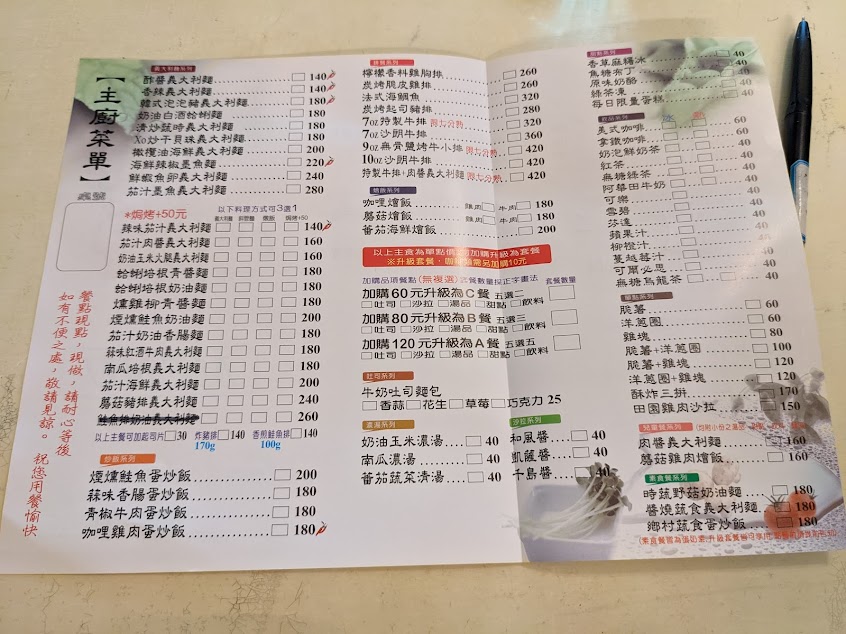 【主廚菜單】
桌號
餐點現點,現做,請耐心等後
如有不便之處,敬請見諒。 祝您用餐愉快
義大利麵系列
酢醬義大利麵 140
香辣義大利麵 140
韓式泡泡豬義大利麵 180
奶油白酒蛤蜊麵 180
清炒蔬時義大利麵 180
Xo炒干貝珠義大利麵 180
橄欖油海鮮義大利麵 200
海鮮辣椒墨魚麵 220
鮮蝦魚卵義大利麵 240
茄汁墨魚義大利麵 280
*焗烤+50元 以下料理方式可3選1
義大利麵 燉飯 焗烤+50
辣味茄汁義大利麵 140
茄汁肉醬義大利麵 160
奶油玉米火腿義大利麵 160
蛤蜊培根青醬麵 180
蛤蜊培根奶油麵 180
燻雞柳青醬麵 180
煙燻鮭魚奶油麵 200
茄汁奶油香腸麵 180
蒜味紅酒牛肉義大利麵 180
南瓜培根義大利麵 180
茄汁海鮮義大利麵 200
蘑菇豬排義大利麵 240
鮭魚排奶油義大利麵 260
以上主餐可加起司片 30 炸豬排 140 香煎鮭魚排 140
170g 100g
炒飯系列
煙燻鮭魚蛋炒飯 200
蒜味香腸蛋炒飯 180
青椒牛肉蛋炒飯 180
咖哩雞肉蛋炒飯 180
排餐系列
檸檬香料雞胸排 260
炭烤脆皮雞排 260
法式海鯛魚 320
炭烤起司豬排 280
7oz特製牛排 限七分熟 320
7oz沙朗牛排 360
9oz無骨鹽烤牛小排 限七分熟 420
10oz沙朗牛排 420
特製牛排+肉醬義大利麵 限七分熟 420
燴飯系列
咖哩燴飯 雞肉 牛肉 180
蘑菇燴飯 雞肉 牛肉 180
蕃茄海鮮燴飯 200
以上主食為單點價 加購升級為套餐
※升級套餐,咖啡類需另加購10元
加購品項餐點(無複選)套餐數量採正字畫法 套餐數量
加購60元升級為C餐 五選二
吐司 沙拉 湯品 甜點 飲料
加購80元升級為B餐 五選三
吐司 沙拉 湯品 甜點 飲料
加購120元升級為A餐 五選五
吐司 沙拉 湯品 甜點 飲料
吐司系列
牛奶吐司麵包
香蒜 花生 草莓 巧克力 25
濃湯系列
奶油玉米濃湯 40
南瓜濃湯 40
蕃茄蔬菜清湯 40
沙拉系列
和風醬 40
凱薩醬 40
千島醬 40
甜點系列
香草麻糬冰 40
焦糖布丁 40
原味奶酪 40
綠茶凍 40
每日限量蛋糕 40
飲品系列 冰 熱
美式咖啡 60
拿鐵咖啡 60
奶泡鮮奶茶 60
紅茶 40
無糖綠茶 40
阿華田牛奶 40
可樂 40
雪碧 40
芬達 40
蘋果汁 40
柳橙汁 40
蔓越莓汁 40
可爾必思 40
無糖烏龍茶 40
單點系列
脆薯 60
洋蔥圈 60
雞塊 80
脆薯+洋蔥圈 100
脆薯+雞塊 120
洋蔥圈+雞塊 120
酥炸三拼 170
田園雞肉沙拉 150
兒童餐系列
肉醬義大利麵 160
蘑菇雞肉燴飯 160
素食餐系列
時蔬野菇奶油麵 180
醬燒蔬食義大利麵 180
鄉村蔬食蛋炒飯 180